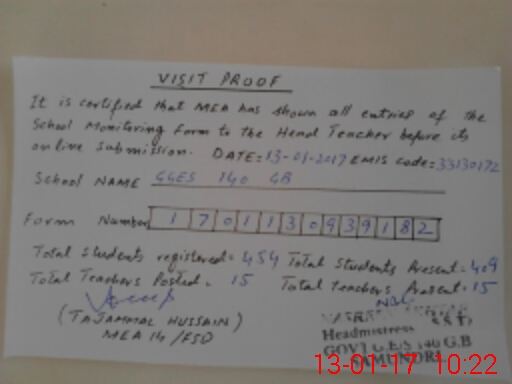 VISIT PROOF
It is certified that MEA has shown all entries of the
School Monitoring Form to the Head Teacher before its
online submission. DATE=13-01-2017 EMIS Code=33130172
School NAME GGES 140 GB
Form Number 1 7 0 1 1 3 0 9 3 9 1 8 2
Total Students registered=454 Total Students Present=409
Total Teachers Posted= 15 Total Teachers Present=15
(TAJAMMAL HUSSAIN)
MEA 14/FSD
Headmistress S.S.T.
GOVT G.E/S 140 G.B
SAMUNDRI
13-01-17 10:22